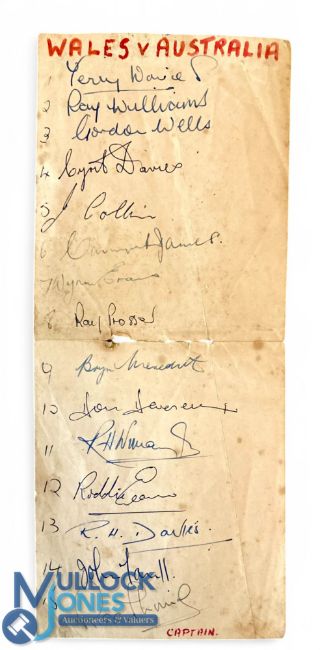 WALES v AUSTRALIA
1 Terry Davies
2 Ray Williams
3 Gordon Wells
4 Cyril Davies
5 J Collins
6 Carwyn James.
7 Wynne Evans
8 Ray Prosser
9 Bryn Meredith
10 Don Devereux
11 R H Williams
12 Roddie Evans
13 R. H. Davies.
14 John Faull
MULLOCK
JONES
Auctioneers & Valuers
CAPTAIN.